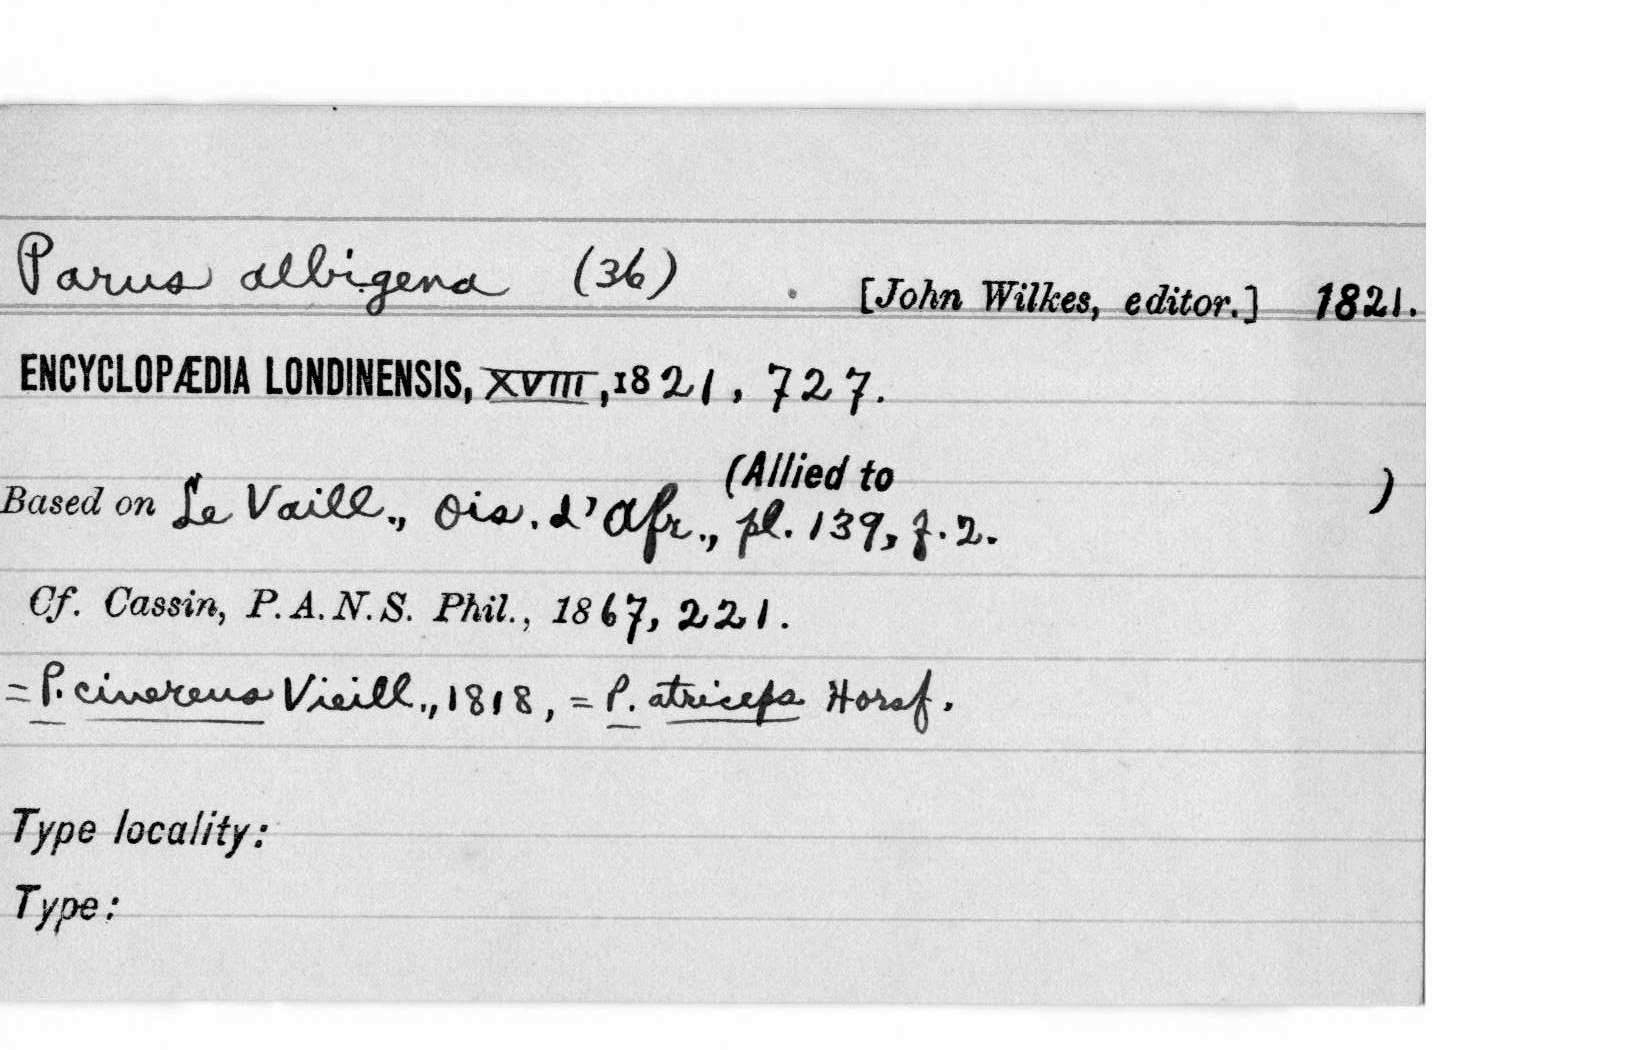 Parus albigena (36) . [John Wilkes, editor.] 1821.
ENCYCLOPÆDIA LONDINENSIS, XVIII, 1821, 727.
(Allied to )
Based on Le Vaill., Ois. d'Afr., pl. 139, f. 2.
Cf. Cassin, P. A. N. S. Phil., 1867, 221.
= P. cinereus Vieill., 1818, = P. atriceps Horsf.
Type locality:
Type: